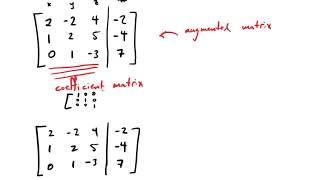 x y z
2 -2 4 -2
1 2 5 -4
0 1 -3 7
augmented matrix
coefficient matrix
1 0 0
0 1 0
0 0 1
2 -2 4 -2
1 2 5 -4
0 1 -3 7